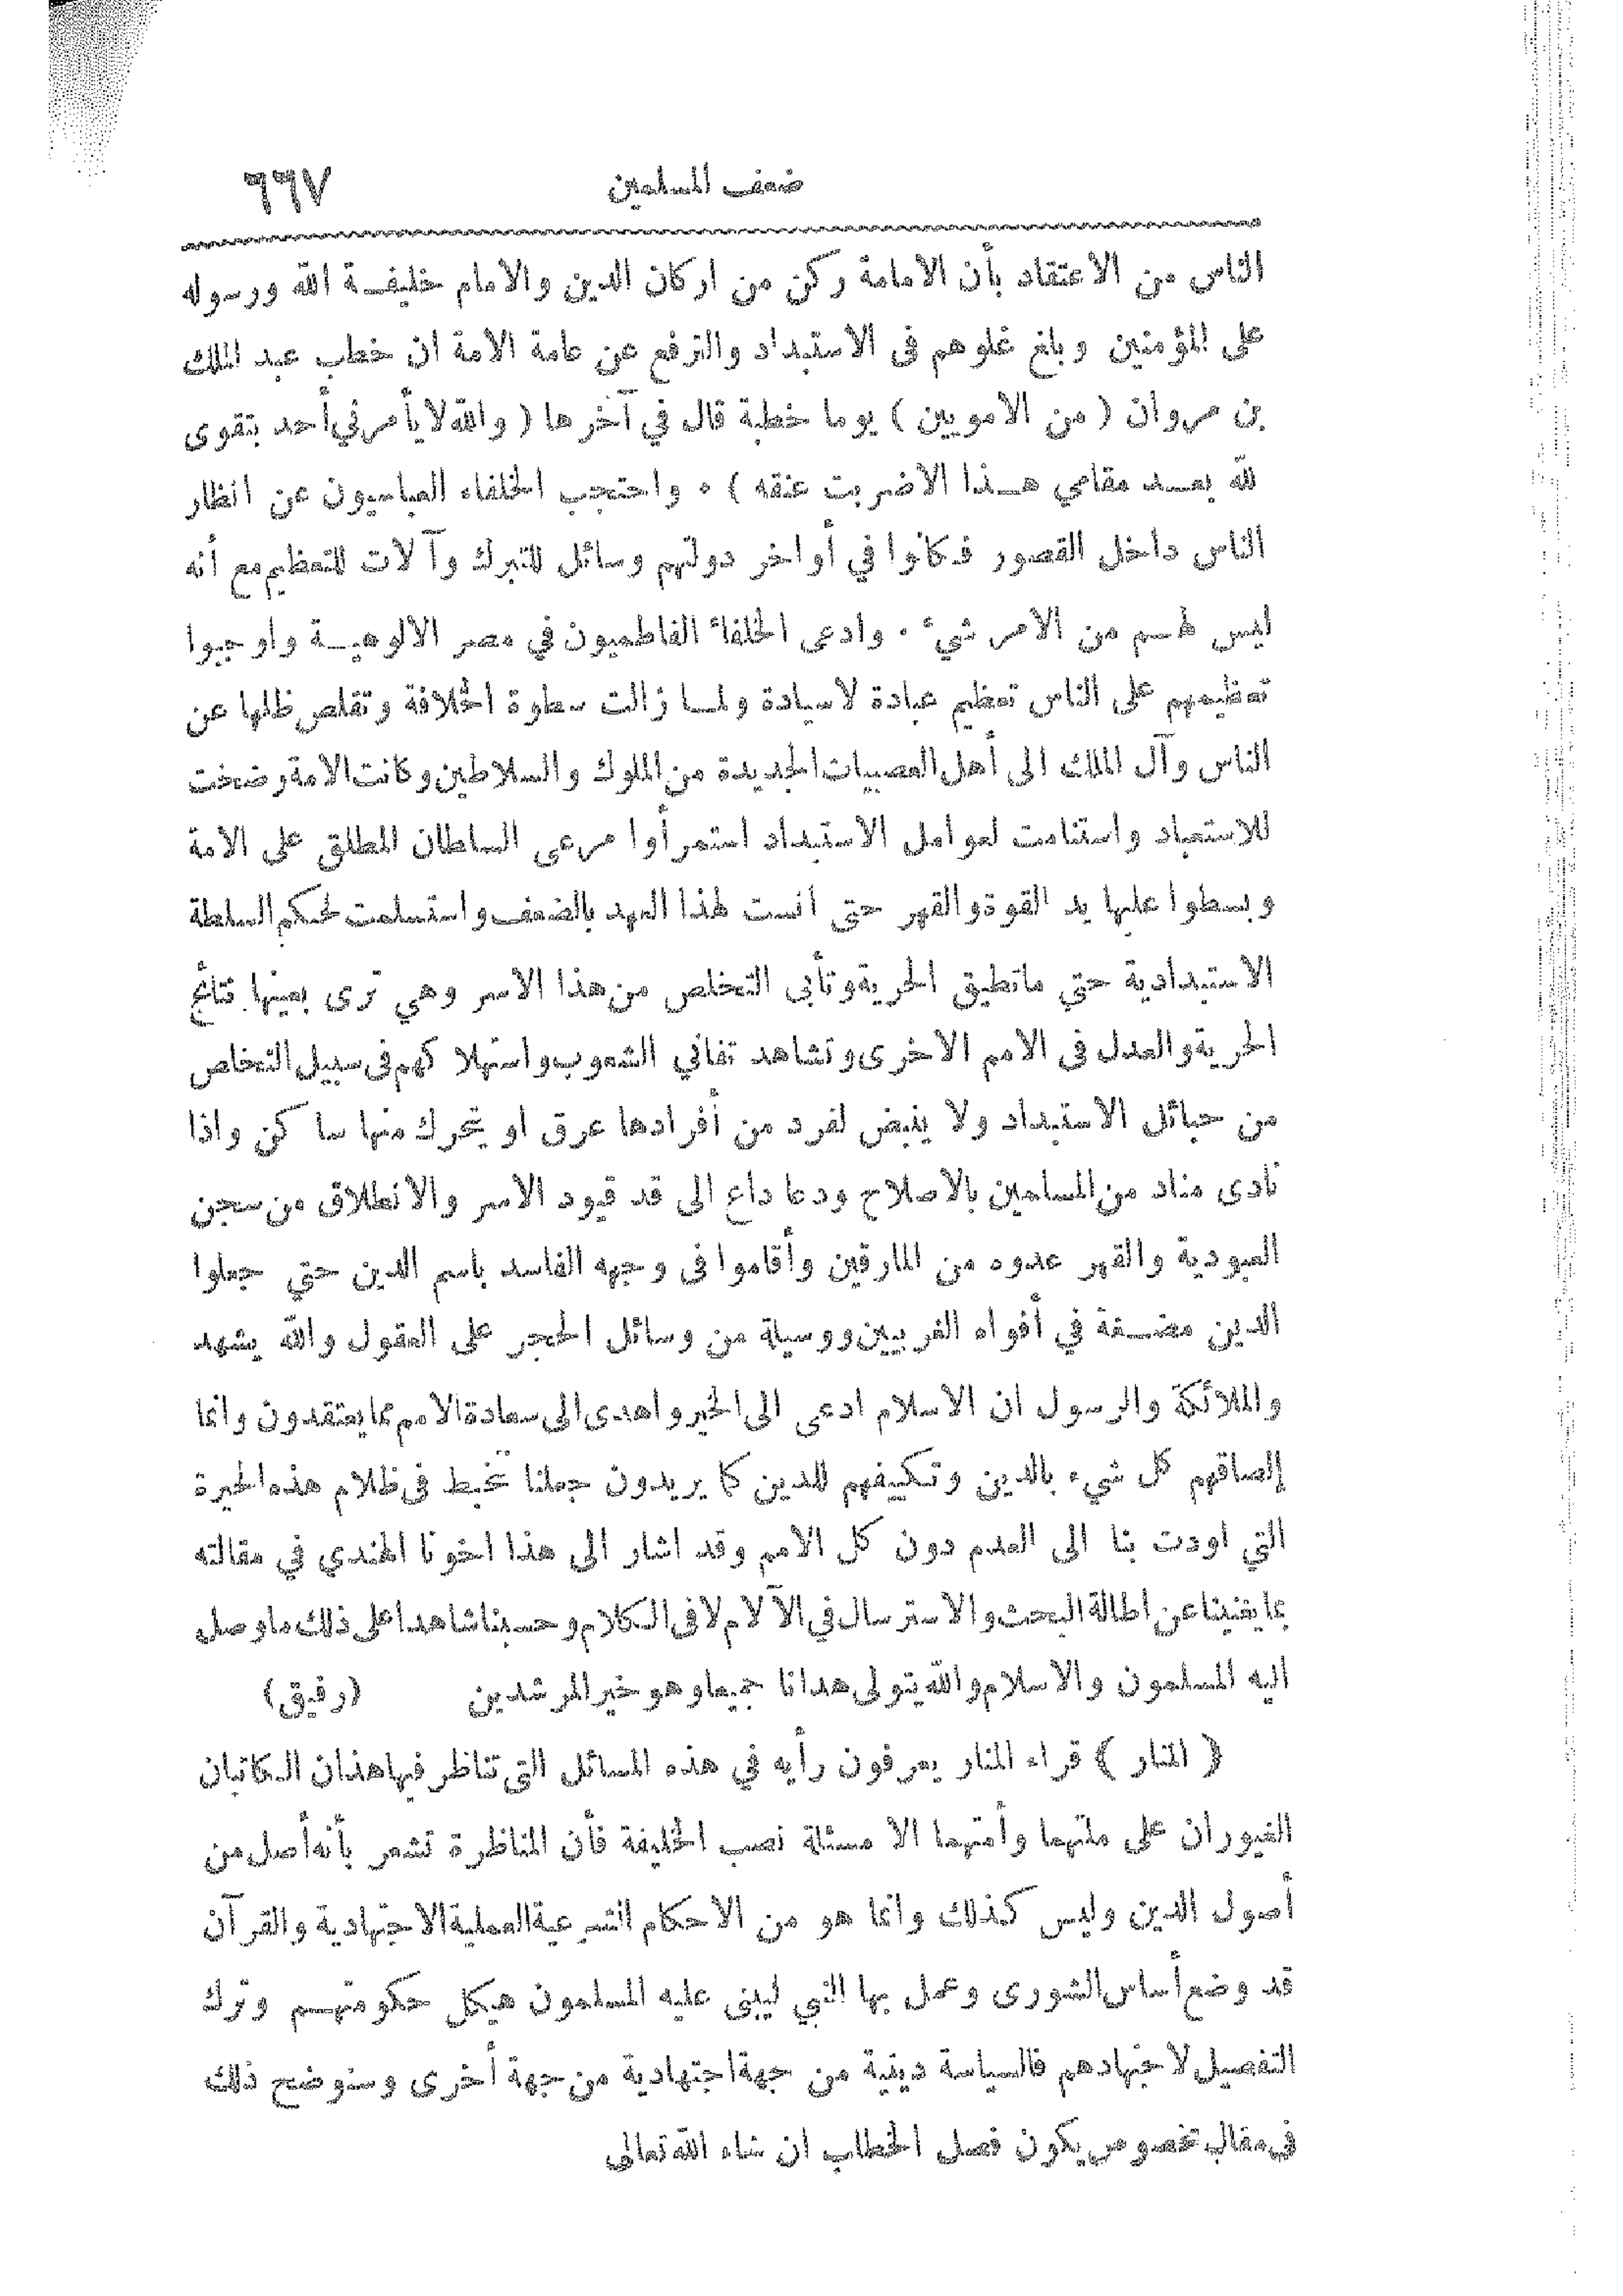 ضعف المسلمين ٦٦٧
الناس من الاعتقاد بأن الامامة ركن من اركان الدين والامام خليفة الله ورسوله
على المؤمنين وبلغ غلوهم فى الاستبداد والترفع عن عامة الامة ان خطب عبد الملك
بن مروان ( من الامويين ) يوما خطبة قال في آخرها ( والله لا يأمرني أحد بتقوى
لله بعد مقامي هذا الا ضربت عنقه ) ٠ واحتجب الخلفاء العباسيون عن انظار
الناس داخل القصور فكانوا في أواخر دولتهم وسائل للتبرك وآلات للتعظيم مع أنه
ليس لهم من الامر شيء ٠ وادعى الخلفاء الفاطميون في مصر الالوهية واوجبوا
تعظيمهم على الناس تعظيم عبادة لا سيادة ولما زالت سطوة الخلافة وتقلص ظلها عن
الناس وآل الملك الى أهل العصبيات الجديدة من الملوك والسلاطين وكانت الامة رضخت
للاستعباد واستنامت لعوامل الاستبداد استمرأوا مرعى السلطان المطلق على الامة
وبسطوا عليها يد القوة والقهر حتى انست لهذا العهد بالضعف واستسلمت لحكم السلطة
الاستبدادية حتي ما تطيق الحرية وتأبى التخلص من هذا الاسر وهي ترى بعينها نتائج
الحرية والعدل فى الامم الاخرى وتشاهد تفاني الشعوب واستهلاكهم فى سبيل التخلص
من حبائل الاستبداد ولا ينبض لفرد من أفرادها عرق او يتحرك منها ساكن واذا
نادى مناد من المسلمين بالاصلاح ودعا داع الى قد قيود الاسر والانطلاق من سجن
العبودية والقهر عدوه من المارقين وأقاموا فى وجهه الفاسد باسم الدين حتي جعلوا
الدين مضغة في أفواه الغربيين ووسيلة من وسائل الحجر على العقول والله يشهد
والملائكة والرسول ان الاسلام ادعى الى الخير واهدى الى سعادة الامم مما يعتقدون وانما
إلصاقهم كل شيء بالدين وتكييفهم للدين كما يريدون جعلنا نتخبط فى ظلام هذه الحيرة
التي اودت بنا الى العدم دون كل الامم وقد اشار الى هذا اخونا الهندي في مقالته
بما يغنينا عن اطالة البحث والاسترسال في الآلام لا فى الكلام وحسبنا شاهدا على ذلك ما وصل
اليه المسلمون والاسلام والله يتولى هدانا جميعا وهو خير المرشدين (رفيق)
( المنار ) قراء المنار يعرفون رأيه في هذه المسائل التى تناظر فيها هذان الكاتبان
الغيوران على ملتهما وأمتهما الا مسئلة نصب الخليفة فأن المناظرة تشعر بأنه أصل من
أصول الدين وليس كذلك وانما هو من الاحكام الشرعية العملية الاجتهادية والقرآن
قد وضع أساس الشورى وعمل بها النبي ليبنى عليه المسلمون هيكل حكومتهم وترك
التفصيل لاجتهادهم فالسياسة دينية من جهة اجتهادية من جهة أخرى وسنوضح ذلك
فى مقال مخصوص يكون فصل الخطاب ان شاء الله تعالى